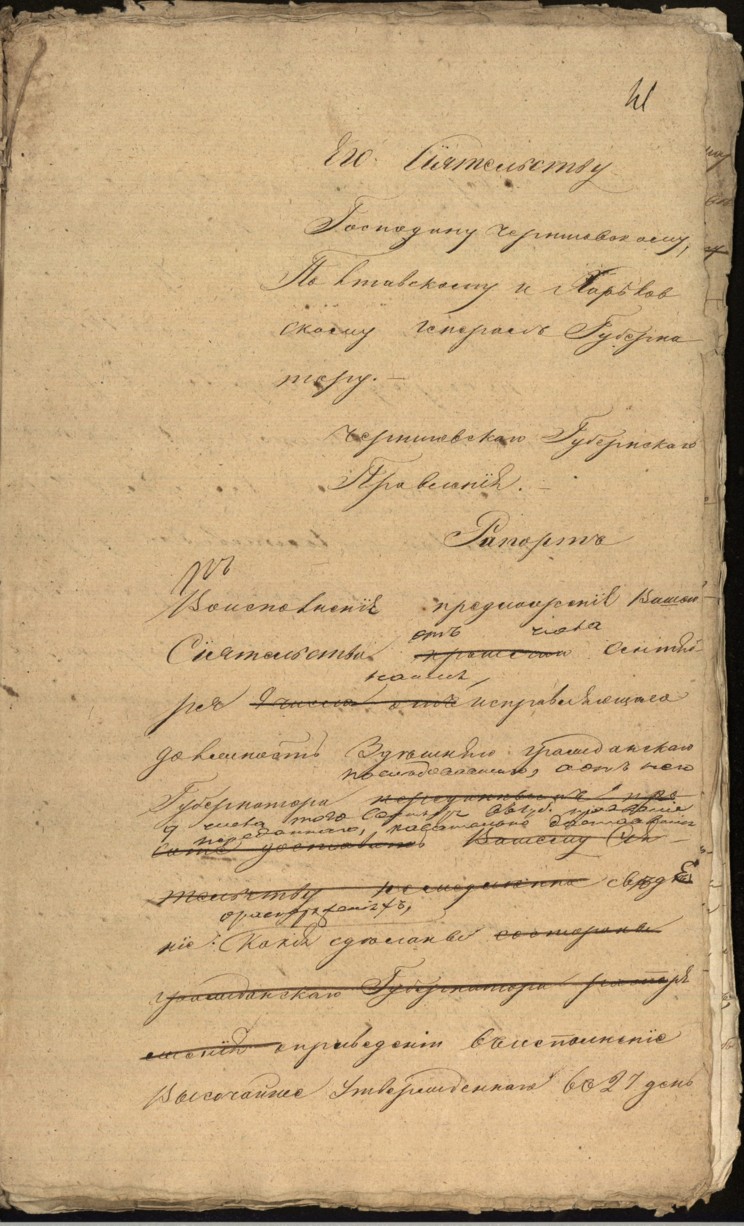 41
Его Сіятельству
Господину Черниговскому,
Полтавскому и Харьков
скому Генералъ Губерна
тору. —
Черниговскаго Губернскаго
Правленія. —
Рапортъ
Воисполненіе предписанія Вашего
отъ числа
Сіятельства Сентяб
ря исправляющаго
должность Здѣшняго Гражданскаго
послѣдовавшаго,
Губернатора
9 числа того
Вашему Сія
тельству свѣдѣ
ніе: Какія сдѣланы состороны
гражданскаго Губернатора распоря
женія оприведеніи воисполненіе
Высочайше Утвержденнаго въ 27 день